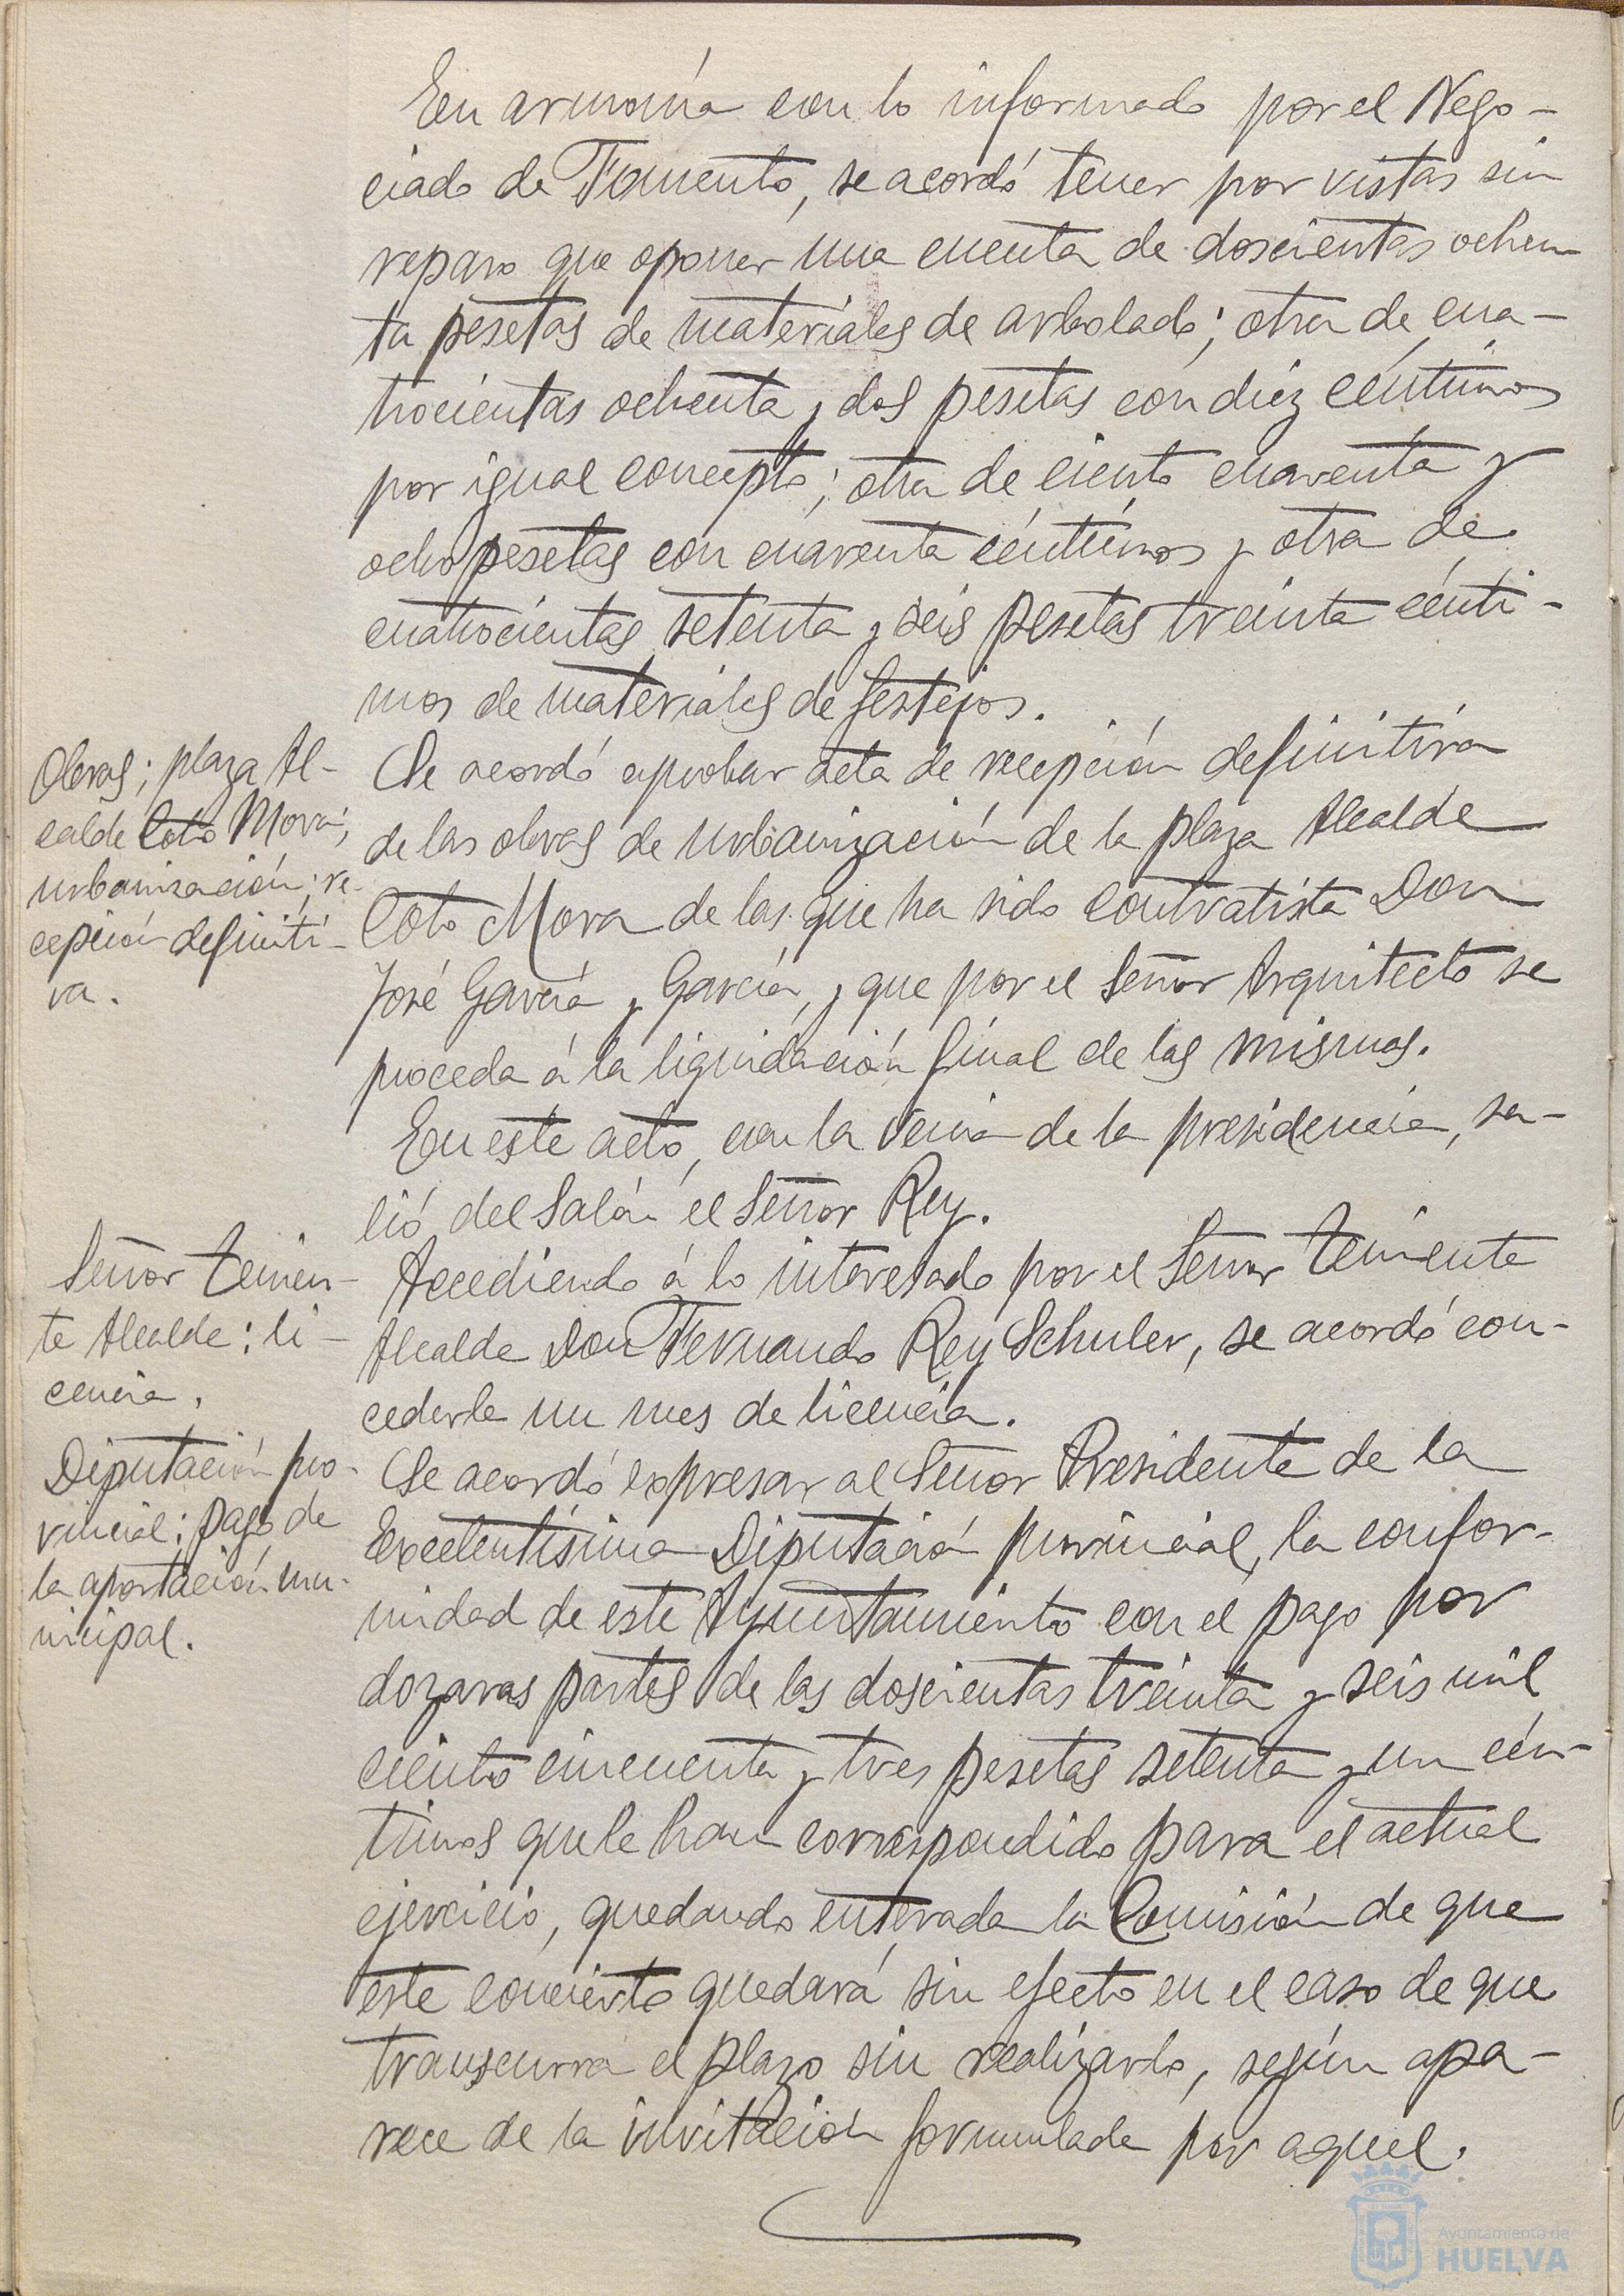 En armonía con lo informado por el Nego-
ciado de Fomento, se acordó tener por vistas sin
reparo que oponer una cuenta de doscientas ochen-
ta pesetas de materiales de arbolado; otra de cua-
trocientas ochenta y dos pesetas con diez céntimos
por igual concepto; otra de ciento cuarenta y
ocho pesetas con cuarenta céntimos y otra de
cuatrocientas setenta y seis pesetas treinta cénti-
mos de materiales de festejos.
Obras; plaza Al-
calde Coto Mora;
urbanización; re-
cepción definiti-
va.
Se acordó aprobar acta de recepción definitiva
de las obras de urbanización de la plaza Alcalde
Coto Mora de las que ha sido contratista Don
José García y García, y que por el Señor Arquitecto se
proceda á la liquidación final de las mismas.
En este acto, con la venia de la presidencia, sa-
lió del Salón el Señor Rey.
Señor Tenien-
te Alcalde: li-
cencia.
Accediendo á lo interesado por el Señor Teniente
Alcalde Don Fernando Rey Schuler, se acordó con-
cederle un mes de licencia.
Diputación pro-
vincial: pago de
la aportación mu-
nicipal.
Se acordó expresar al Señor Presidente de la
Excelentísima Diputación provincial, la confor-
midad de este Ayuntamiento con el pago por
dozavas partes de las doscientas treinta y seis mil
ciento cincuenta y tres pesetas setenta y un cén-
timos que le han correspondido para el actual
ejercicio, quedando enterada la Comisión de que
este concierto quedará sin efecto en el caso de que
transcurra el plazo sin realizarlo, según apa-
rece de la invitación formulada por aquel.
Ayuntamiento de
HUELVA